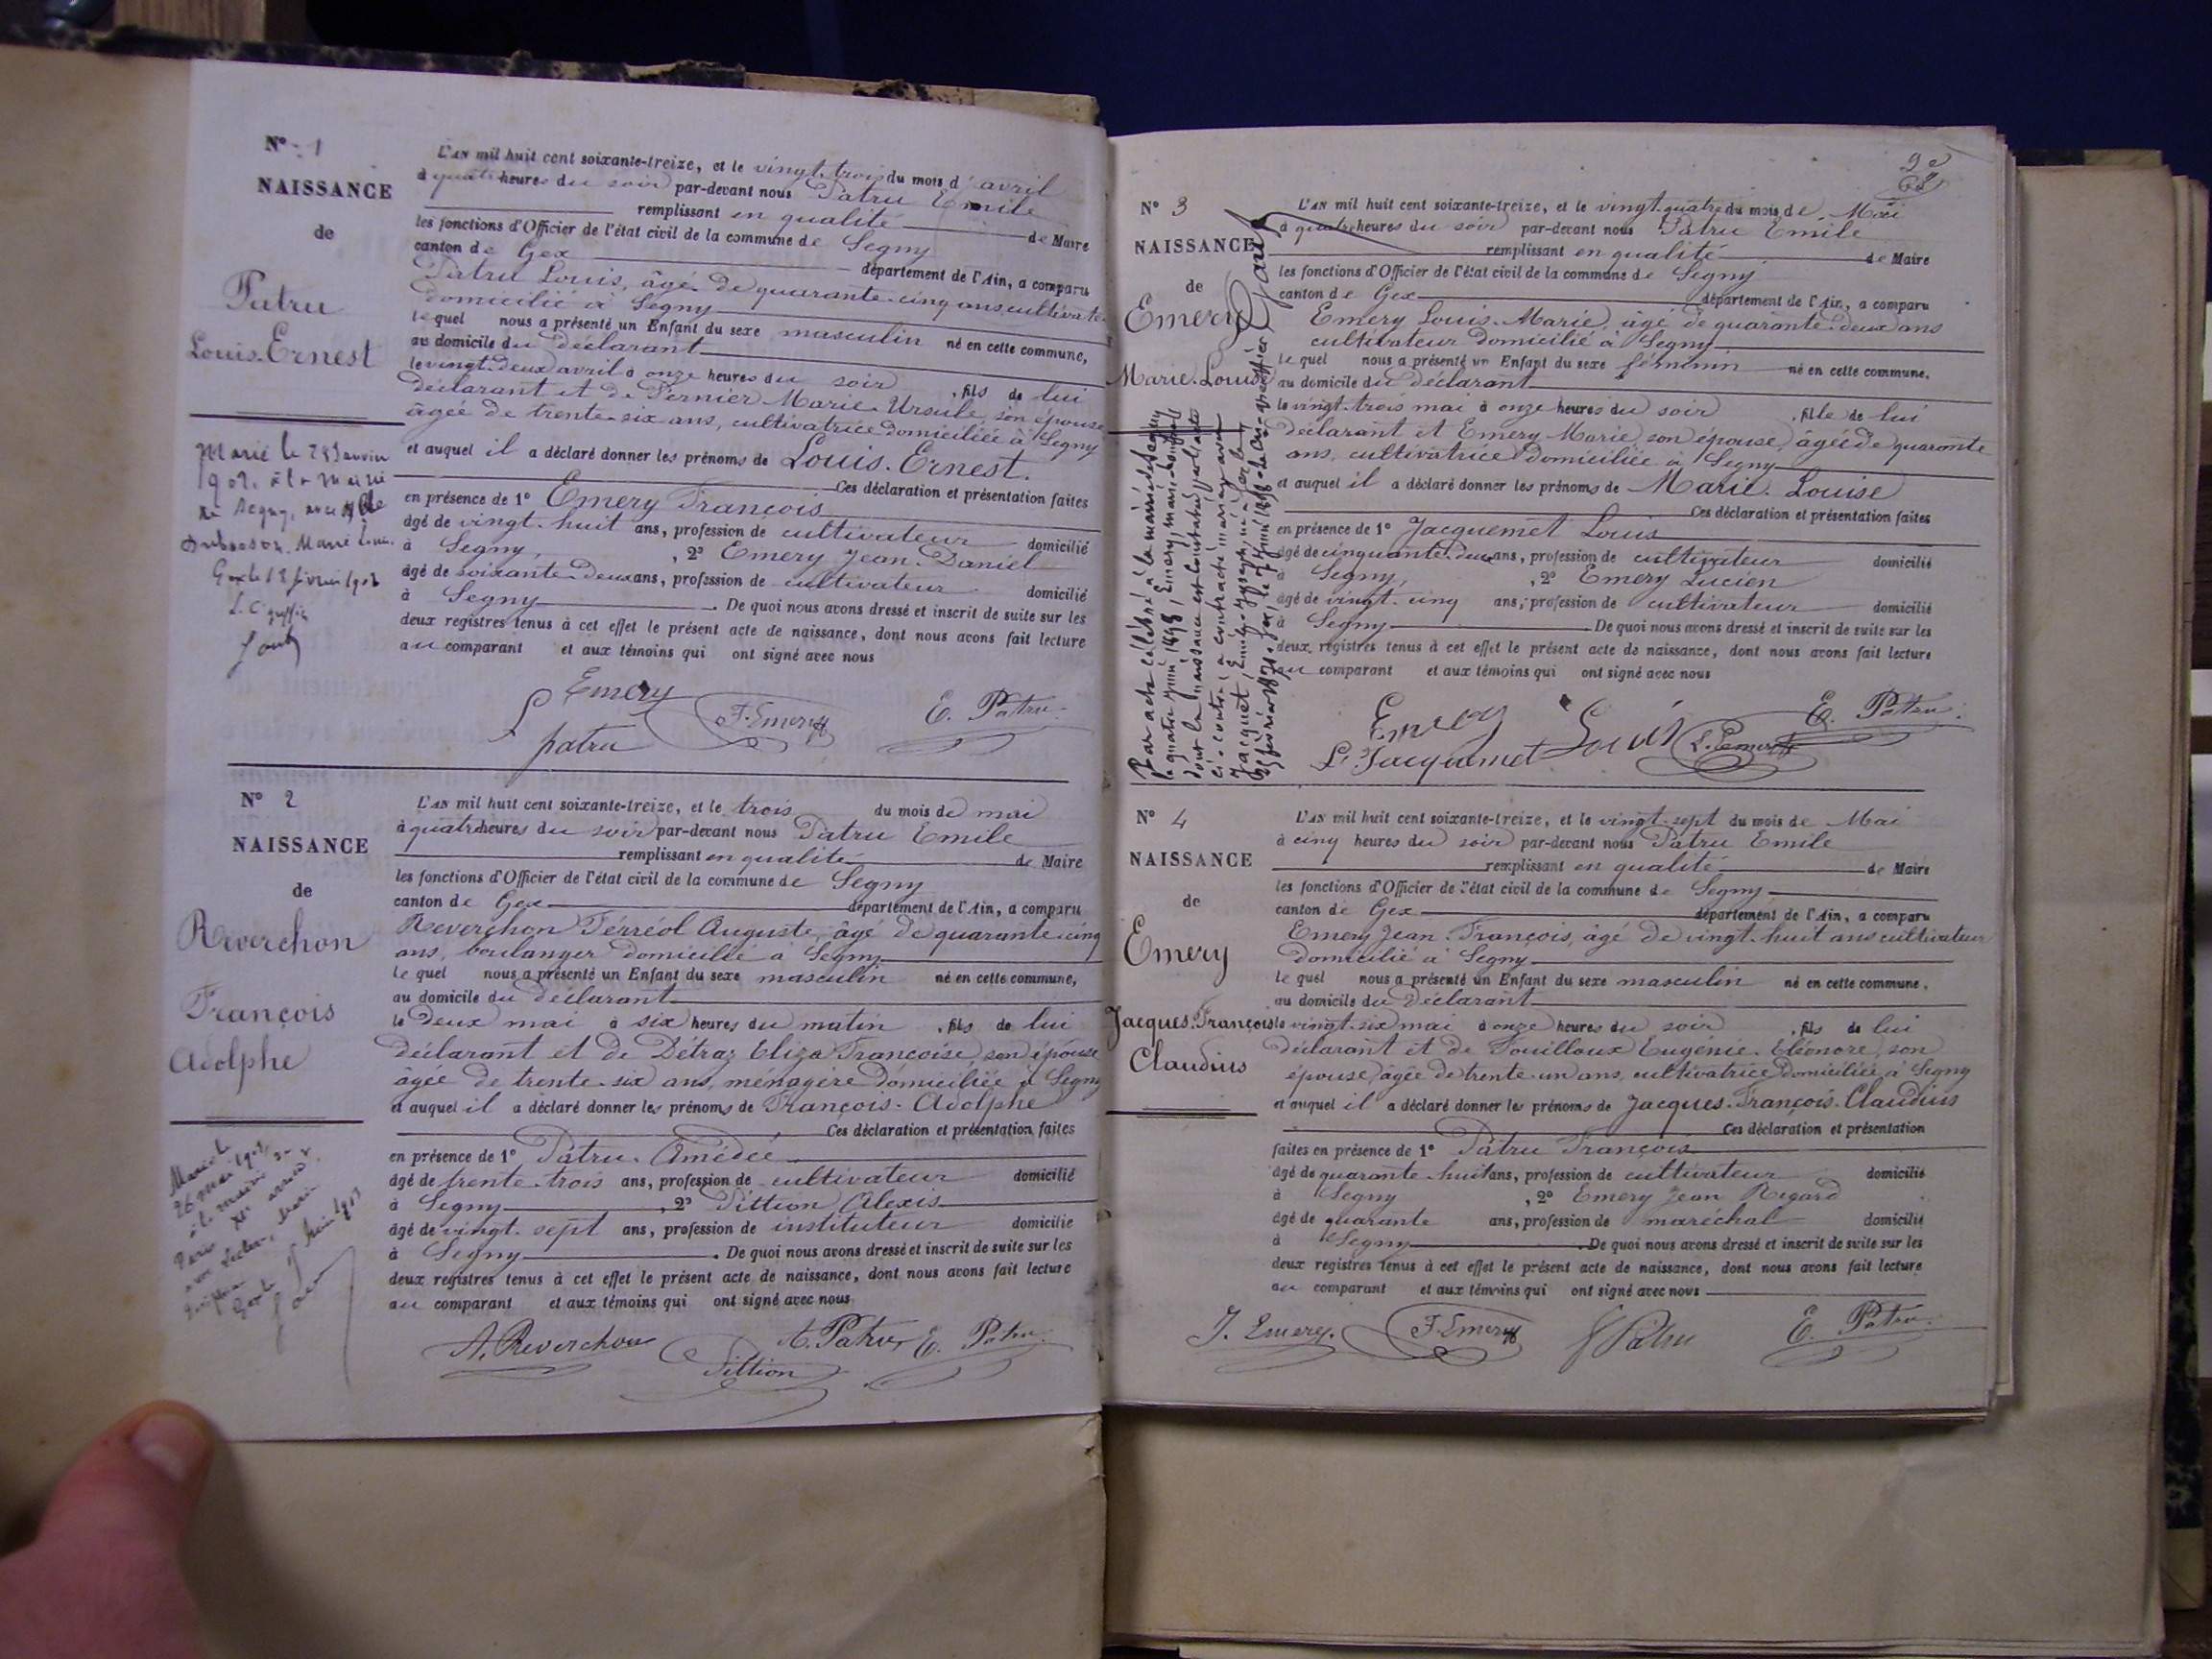 N° 1
NAISSANCE
de
Patru
Louis-Ernest
Marié le 29 Janvier
1902, à la mairie
de Segny, avec Mlle
Dubosson Marie Louise
Gex le 12 février 1902
L. C. greffier
L'AN mil huit cent soixante-treize, et le vingt-trois du mois d'avril
à quatre heures du soir par-devant nous Patru Emile
remplissant en qualité de Maire
les fonctions d'Officier de l'état civil de la commune de Segny
canton de Gex département de l'Ain, a comparu
Patru Louis, âgé de quarante-cinq ans, cultivateur
domicilié à Segny
lequel nous a présenté un Enfant du sexe masculin né en cette commune,
au domicile du déclarant
le vingt-deux avril à onze heures du soir, fils de lui
déclarant et de Pernier Marie-Ursule, son épouse
âgée de trente-six ans, cultivatrice domiciliée à Segny
et auquel il a déclaré donner les prénoms de Louis-Ernest.
Ces déclaration et présentation faites
en présence de 1° Emery François
âgé de vingt-huit ans, profession de cultivateur domicilié
à Segny, 2° Emery Jean-Daniel
âgé de soixante-deux ans, profession de cultivateur domicilié
à Segny. De quoi nous avons dressé et inscrit de suite sur les
deux registres tenus à cet effet le présent acte de naissance, dont nous avons fait lecture
au comparant et aux témoins qui ont signé avec nous
Emery
patru F. Emery E. Patru
N° 2
NAISSANCE
de
Reverchon
François
Adolphe
Marié le
26 mai 1903
à la mairie du
Paris XIe arrond.
L'AN mil huit cent soixante-treize, et le trois du mois de mai
à quatre heures du soir par-devant nous Patru Emile
remplissant en qualité de Maire
les fonctions d'Officier de l'état civil de la commune de Segny
canton de Gex département de l'Ain, a comparu
Reverchon Férréol Auguste, âgé de quarante-cinq
ans, boulanger domicilié à Segny
lequel nous a présenté un Enfant du sexe masculin né en cette commune,
au domicile du déclarant
le deux mai à six heures du matin, fils de lui
déclarant et de Détraz Eliza Françoise, son épouse
âgée de trente-six ans, ménagère domiciliée à Segny
et auquel il a déclaré donner les prénoms de François-Adolphe
Ces déclaration et présentation faites
en présence de 1° Patru Amédée
âgé de trente-trois ans, profession de cultivateur domicilié
à Segny, 2° Pittion Alexis
âgé de vingt-sept ans, profession de instituteur domicilié
à Segny. De quoi nous avons dressé et inscrit de suite sur les
deux registres tenus à cet effet le présent acte de naissance, dont nous avons fait lecture
au comparant et aux témoins qui ont signé avec nous
A. Reverchon A. Patru E. Patru
Pittion
N° 3
NAISSANCE
de
Emery
Marie-Louise
Par acte célébré à la mairie de Segny
le quatre Juin 1898, Emery, Marie-Louise
dont la naissance est constatée par l'acte
ci-contre, a contracté mariage avec
Jacquet, Emile-Joseph, né à
L'AN mil huit cent soixante-treize, et le vingt-quatre du mois de Mai
à quatre heures du soir par-devant nous Patru Emile
remplissant en qualité de Maire
les fonctions d'Officier de l'état civil de la commune de Segny
canton de Gex département de l'Ain, a comparu
Emery Louis-Marie, âgé de quarante-deux ans
cultivateur domicilié à Segny
lequel nous a présenté un Enfant du sexe féminin né en cette commune.
au domicile du déclarant
le vingt-trois mai à onze heures du soir, fille de lui
déclarant et Emery Marie, son épouse, âgée de quarante
ans, cultivatrice domiciliée à Segny
et auquel il a déclaré donner les prénoms de Marie-Louise
Ces déclaration et présentation faites
en présence de 1° Jacquemet Louis
âgé de cinquante-deux ans, profession de cultivateur domicilié
à Segny, 2° Emery Lucien
âgé de vingt-cinq ans, profession de cultivateur domicilié
à Segny. De quoi nous avons dressé et inscrit de suite sur les
deux registres tenus à cet effet le présent acte de naissance, dont nous avons fait lecture
au comparant et aux témoins qui ont signé avec nous
Emery Louis E. Patru
Ls Jacquemet L. Emery
N° 4
NAISSANCE
de
Emery
Jacques-François
Claudius
L'AN mil huit cent soixante-treize, et le vingt-sept du mois de Mai
à cinq heures du soir par-devant nous Patru Emile
remplissant en qualité de Maire
les fonctions d'Officier de l'état civil de la commune de Segny
canton de Gex département de l'Ain, a comparu
Emery Jean-François, âgé de vingt-huit ans cultivateur
domicilié à Segny
lequel nous a présenté un Enfant du sexe masculin né en cette commune,
au domicile du déclarant
le vingt-six mai à onze heures du soir, fils de lui
déclarant et de Fouilloux Eugénie-Eléonore, son
épouse, âgée de trente-un ans, cultivatrice domiciliée à Segny
et auquel il a déclaré donner les prénoms de Jacques-François-Claudius
Ces déclaration et présentation
faites en présence de 1° Patru François
âgé de quarante-huit ans, profession de cultivateur domicilié
à Segny, 2° Emery Jean Regard
âgé de quarante ans, profession de maréchal domicilié
à Segny. De quoi nous avons dressé et inscrit de suite sur les
deux registres tenus à cet effet le présent acte de naissance, dont nous avons fait lecture
au comparant et aux témoins qui ont signé avec nous
J. Emery. F. Emery F Patru E. Patru